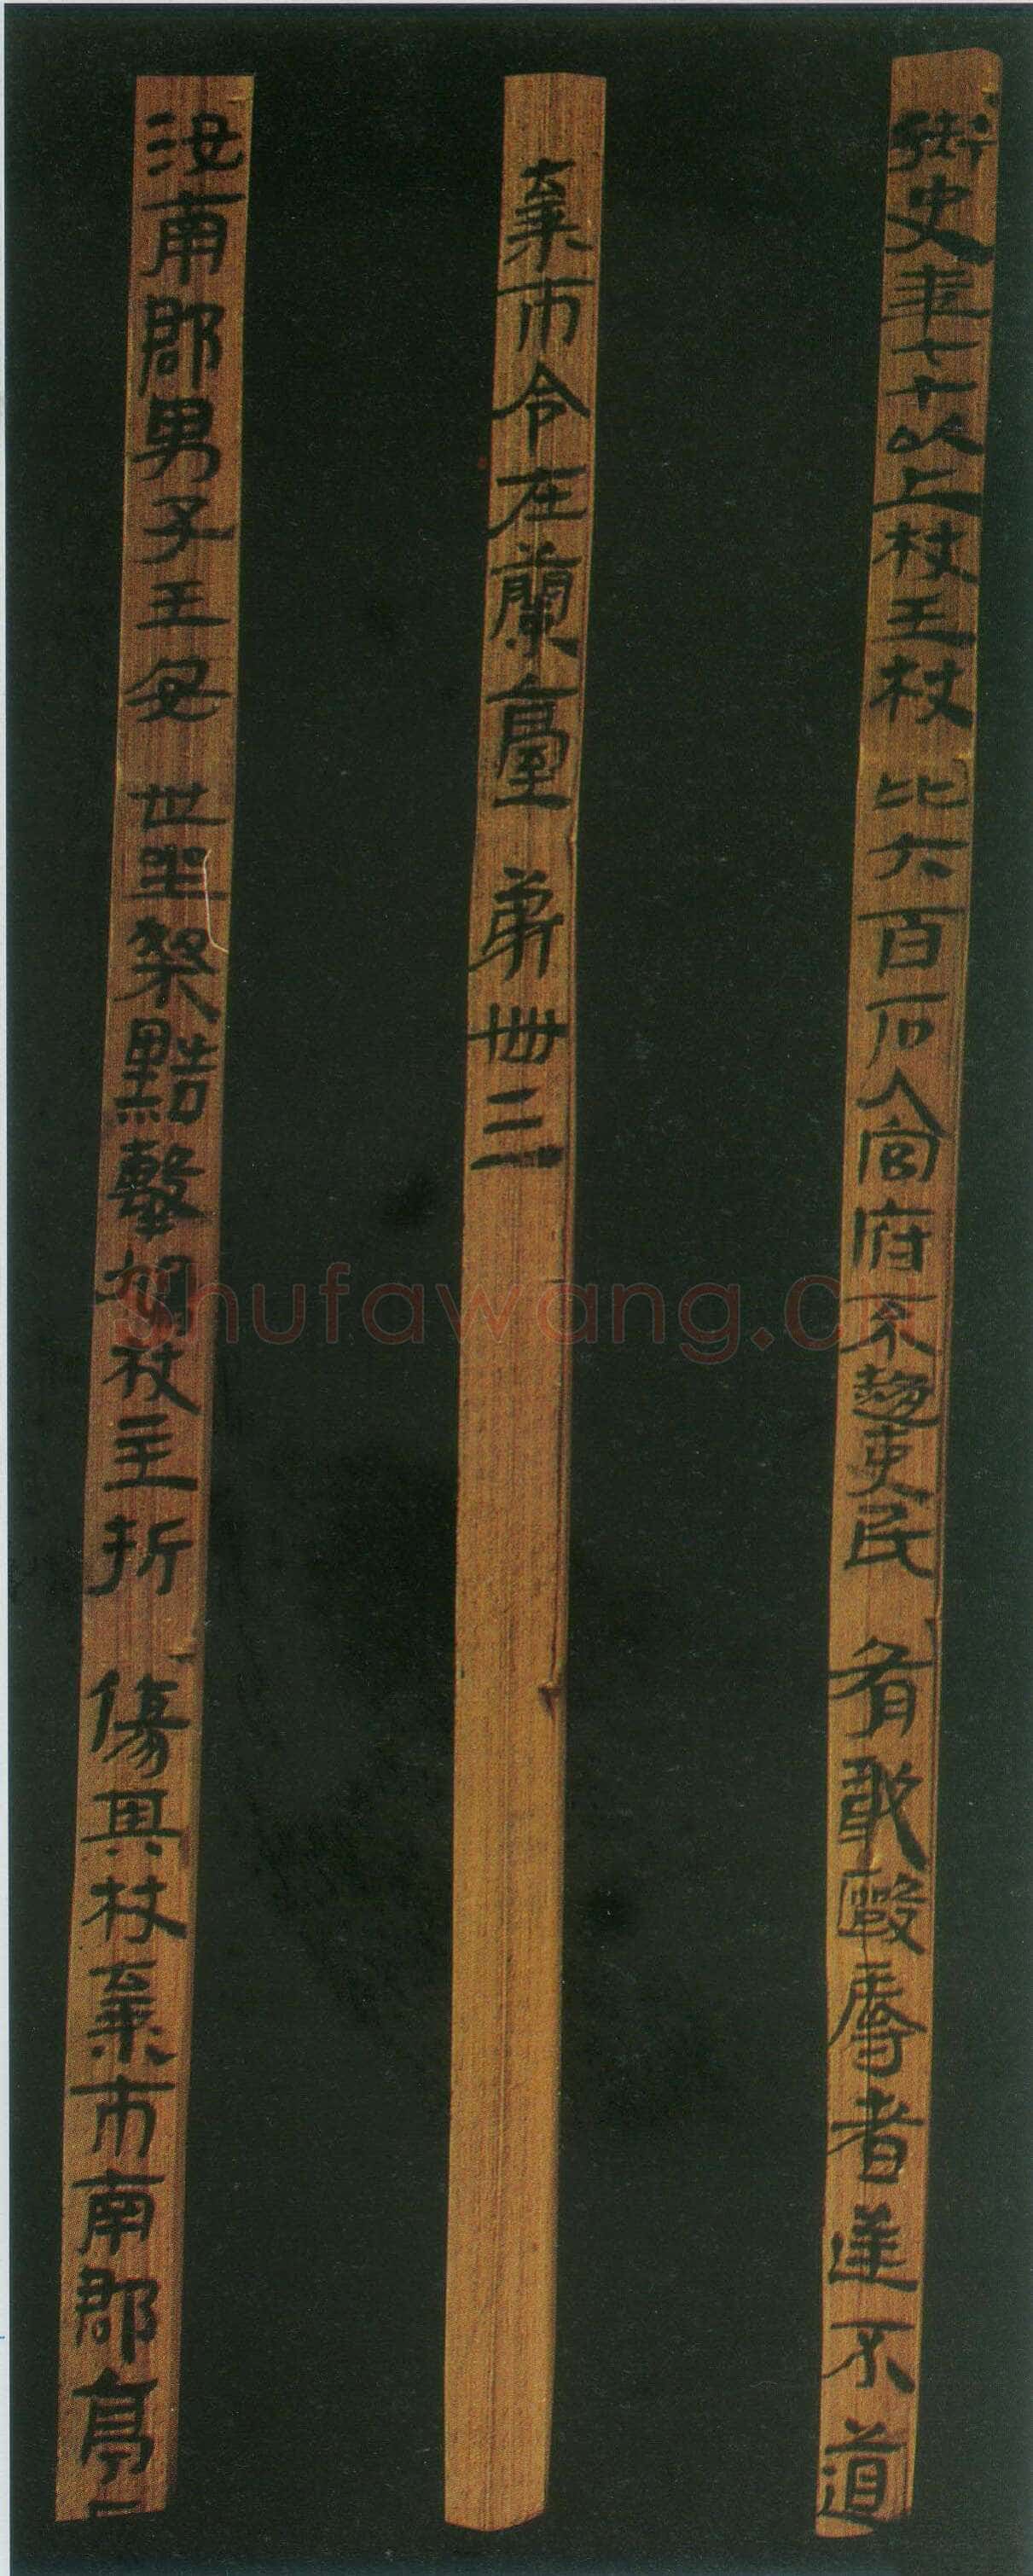 御史年七十以上杖王杖比六百石入官府不趨吏民有敢毆辱者逆不道
棄市令在蘭臺第卌三
汝南郡男子王安世坐桀黠擊鳩杖主折傷其杖棄市南郡亭
shufawang.cn